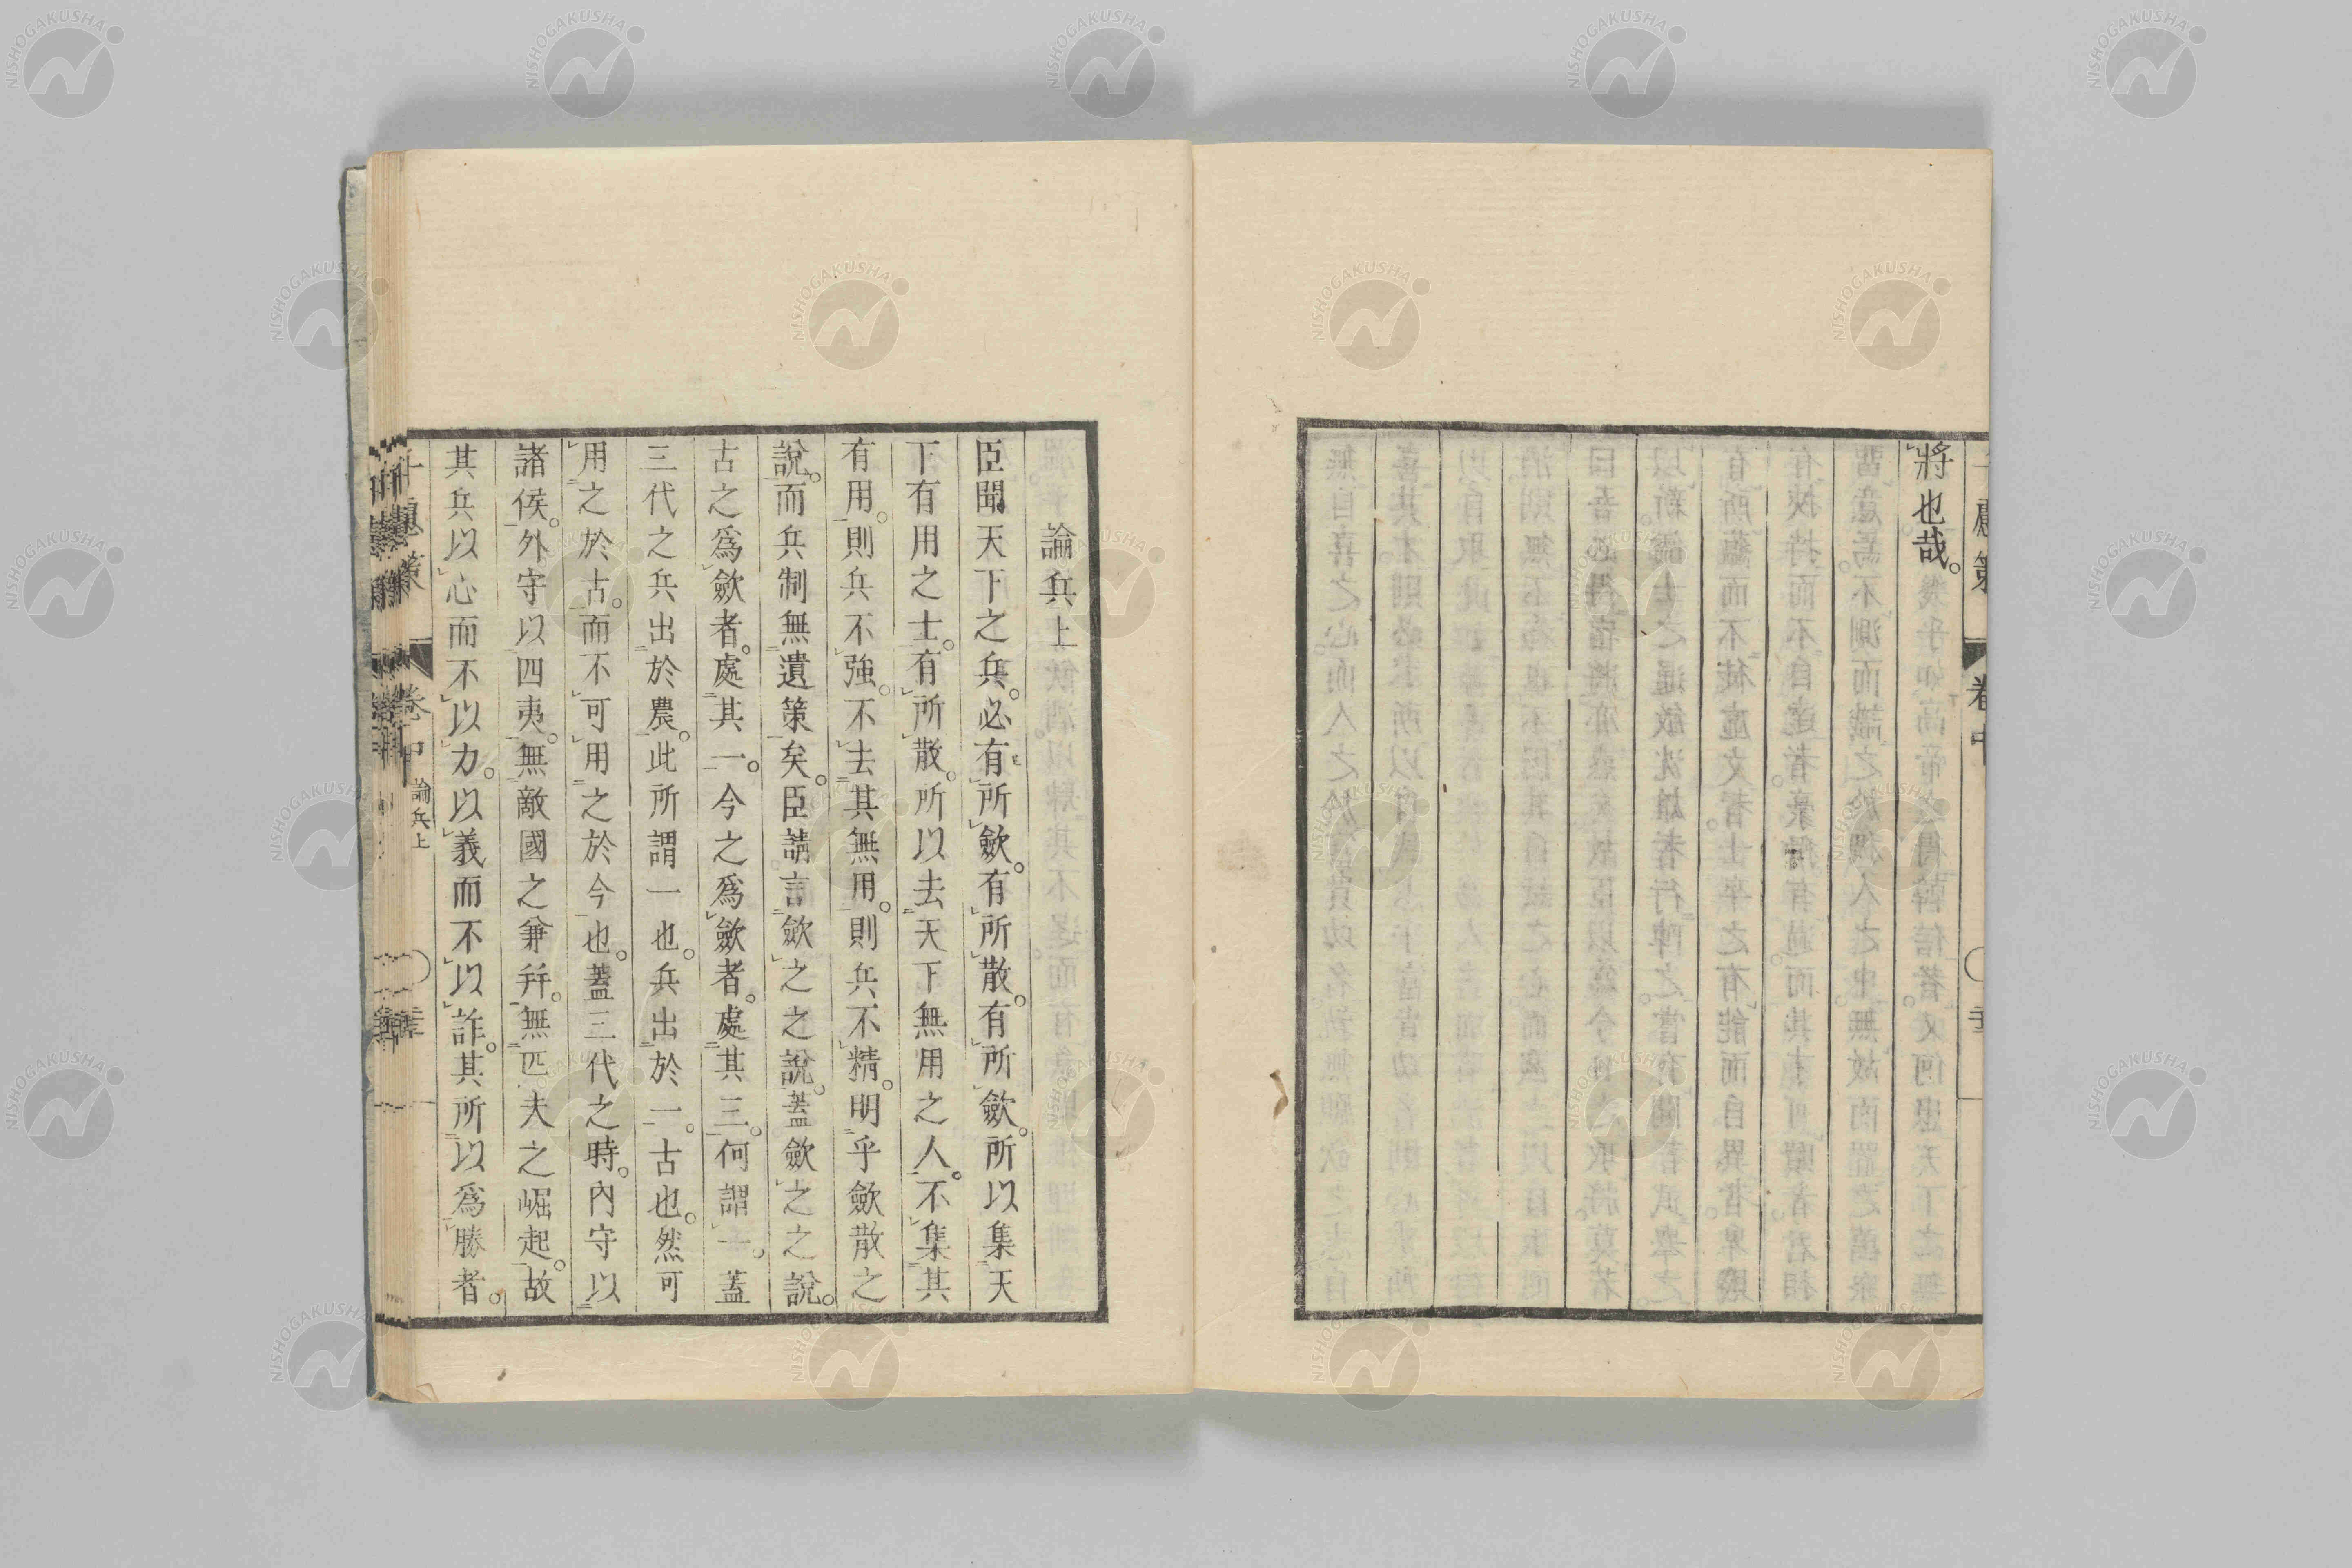 將也哉。
論兵上
臣聞天下之兵。必有所斂。有所散。有所斂。所以集天
下有用之士。有所散。所以去天下無用之人。不集其
有用。則兵不強。不去其無用。則兵不精。明乎斂散之
說。而兵制無遺策矣。臣請言斂之之說。蓋斂之之說。
古之爲斂者。處其一。今之爲斂者。處其三。何謂一。蓋
三代之兵出於農。此所謂一也。兵出於一。古也。然可
用之於古。而不可用之於今也。蓋三代之時。內守以
諸侯。外守以四夷。無敵國之兼幷。無匹夫之崛起。故
其兵以心而不以力。以義而不以詐。其所以爲勝者。
卷中
論兵上
NISHOGAKUSHA